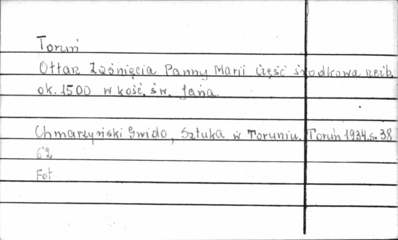 Toruń
Ołtarz Zaśnięcia Panny Marii Część środkowa rzeźb.
ok. 1500 w kość. św. Jana.
Chmarzyński Gwido, Sztuka w Toruniu. Toruń 1934 s. 38
62
Fot